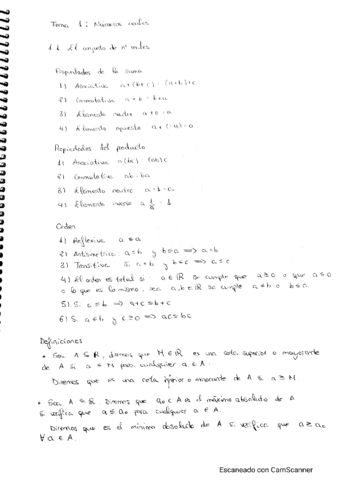 Tema 1: Números reales
1.1 El conjunto de nº reales
Propiedades de la suma
1) Asociativa a+(b+c) = (a+b)+c
2) Conmutativa a+b = b+a
3) Elemento neutro a+0=0
4) Elemento opuesto a+(-a)=0
Propiedades del producto
1) Asociativa a(bc) = (ab)c
2) Conmutativa ab=ba
3) Elemento neutro a·1=a
4) Elemento inverso a 1/a = 1
Orden
1) Reflexiva a≤a
2) Antisimétrica a≤b y b≤a ⟹ a=b
3) Transitiva Si a≤b y b≤c ⟹ a≤c
4) El orden es total si a∈ℝ se cumple que a≥0 o que a≤0
o lo que es lo mismo, sea a,b∈ℝ se cumple a≤b o b≤a
5) Si a≤b ⟹ a+c≤b+c
6) Si a≤b y c≥0 ⟹ ac≤bc
Definiciones
• Sea A⊆ℝ, diremos que M∈ℝ es una cota superior o mayorante
de A si a≤M para cualquier a∈A.
Diremos que es una cota inferior o minorante de A si a≥M
• Sea A⊆ℝ Diremos que a₀∈A es el máximo absoluto de A
si verifica que a≤a₀ para cualquier a∈A.
Diremos que es el mínimo absoluto de A si verifica que a≥a₀
∀a∈A.
Escaneado con CamScanner